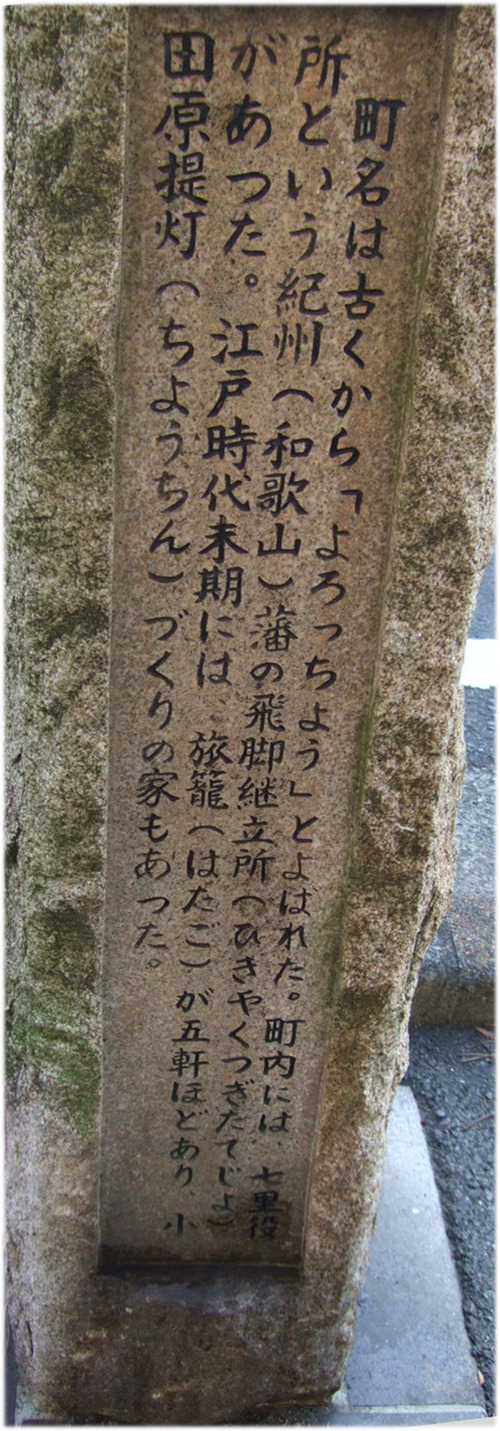 町名は古くから「よろっちよう」とよはれた。町内には、七里役
所という紀州（和歌山）藩の飛脚継立所（ひきやくつぎたてじよ）
があった。江戸時代末期には、旅籠（はたご）が五軒ほどあり、小
田原提灯（ちようちん）づくりの家もあった。